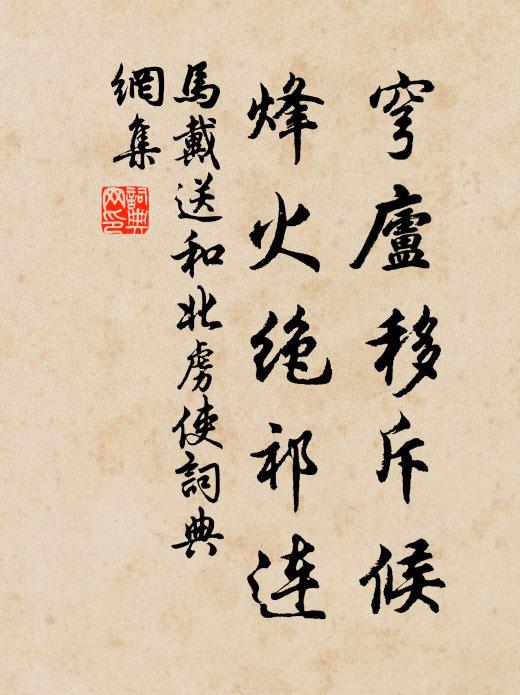 穹廬移斥候
烽火絶祁連
馬戴送和北虜使詞典
網集
詞典
网印